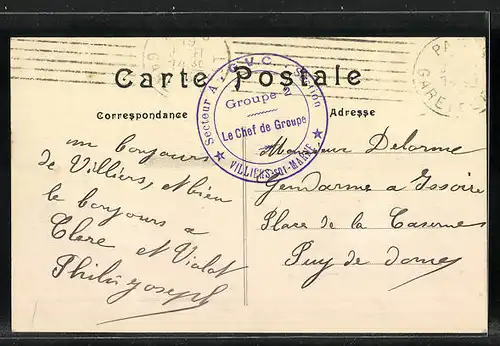 Carte Postale
Correspondance
Adresse
Secteur A - G.V.C. - Section
Groupe 2
Le Chef de Groupe
VILLIERS-sur-MARNE
PA
GARE
un bonjour
de Villiers, et bien
le bonjours a
Clere et Vialat
Joseph
Monsieur Delorme
Gendarme a Issoire
Place de la Caserne
Puy de dome